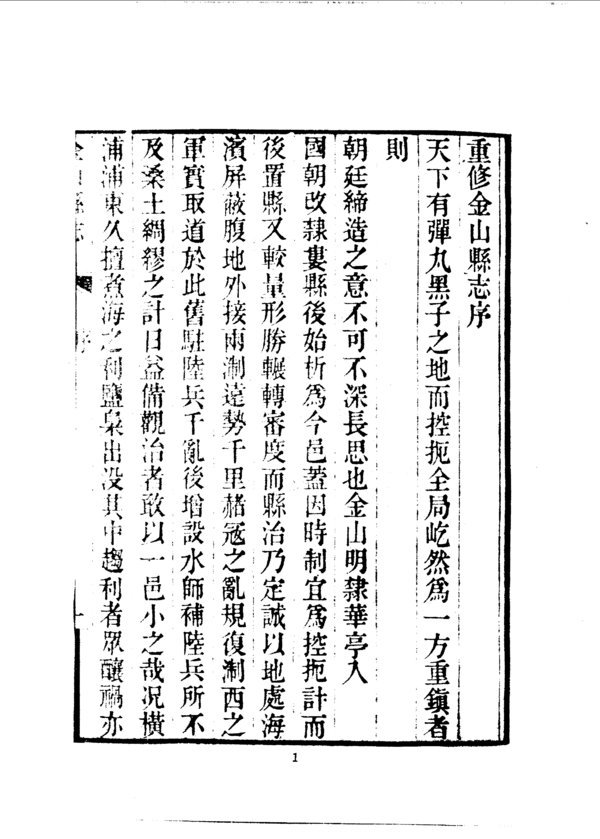 重修金山縣志序
天下有彈丸黑子之地而控扼全局屹然爲一方重鎮者
則
朝廷締造之意不可不深長思也金山明隸華亭入
國朝改隸婁縣後始析爲今邑蓋因時制宜爲控扼計而
後置縣又較量形勝輾轉審度而縣治乃定誠以地處海
濱屏蔽腹地外接兩浙遠勢千里赭冦之亂規復浙西之
軍實取道於此舊駐陸兵千亂後增設水師補陸兵所不
及桑土綢繆之計日益備觀治者敢以一邑小之哉况橫
浦浦東久擅煮海之利鹽梟出没其中趨利者眾釀禍亦
金山縣志
序
一
1